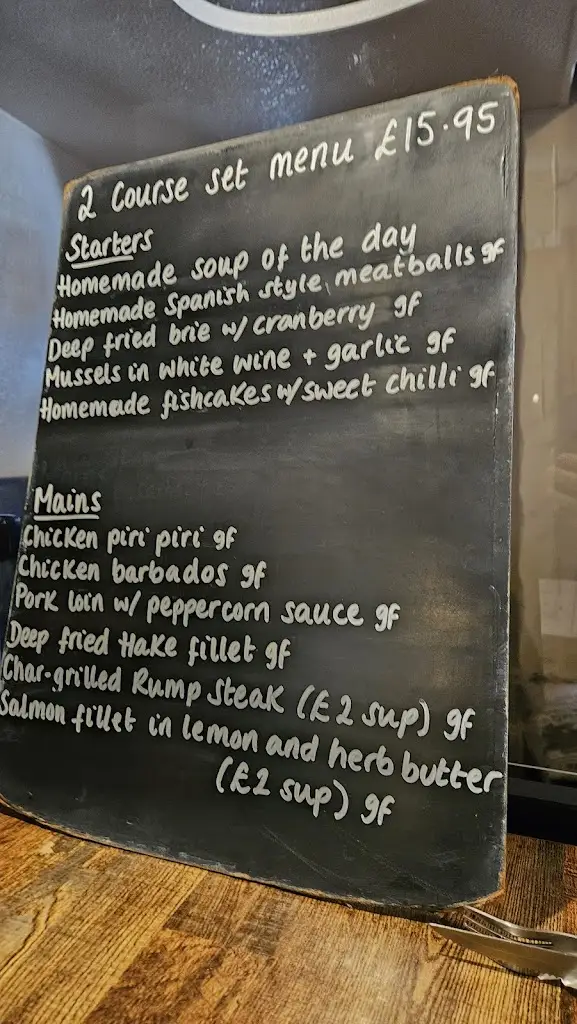 2 Course set menu £15.95
Starters
Homemade soup of the day
Homemade Spanish style meatballs gf
Deep fried brie w/ cranberry gf
Mussels in white wine + garlic gf
Homemade fishcakes w/ sweet chilli gf
Mains
Chicken piri piri gf
Chicken barbados gf
Pork loin w/ peppercorn sauce gf
Deep fried Hake fillet gf
Char-grilled Rump Steak (£2 sup) gf
Salmon fillet in lemon and herb butter
(£2 sup) gf